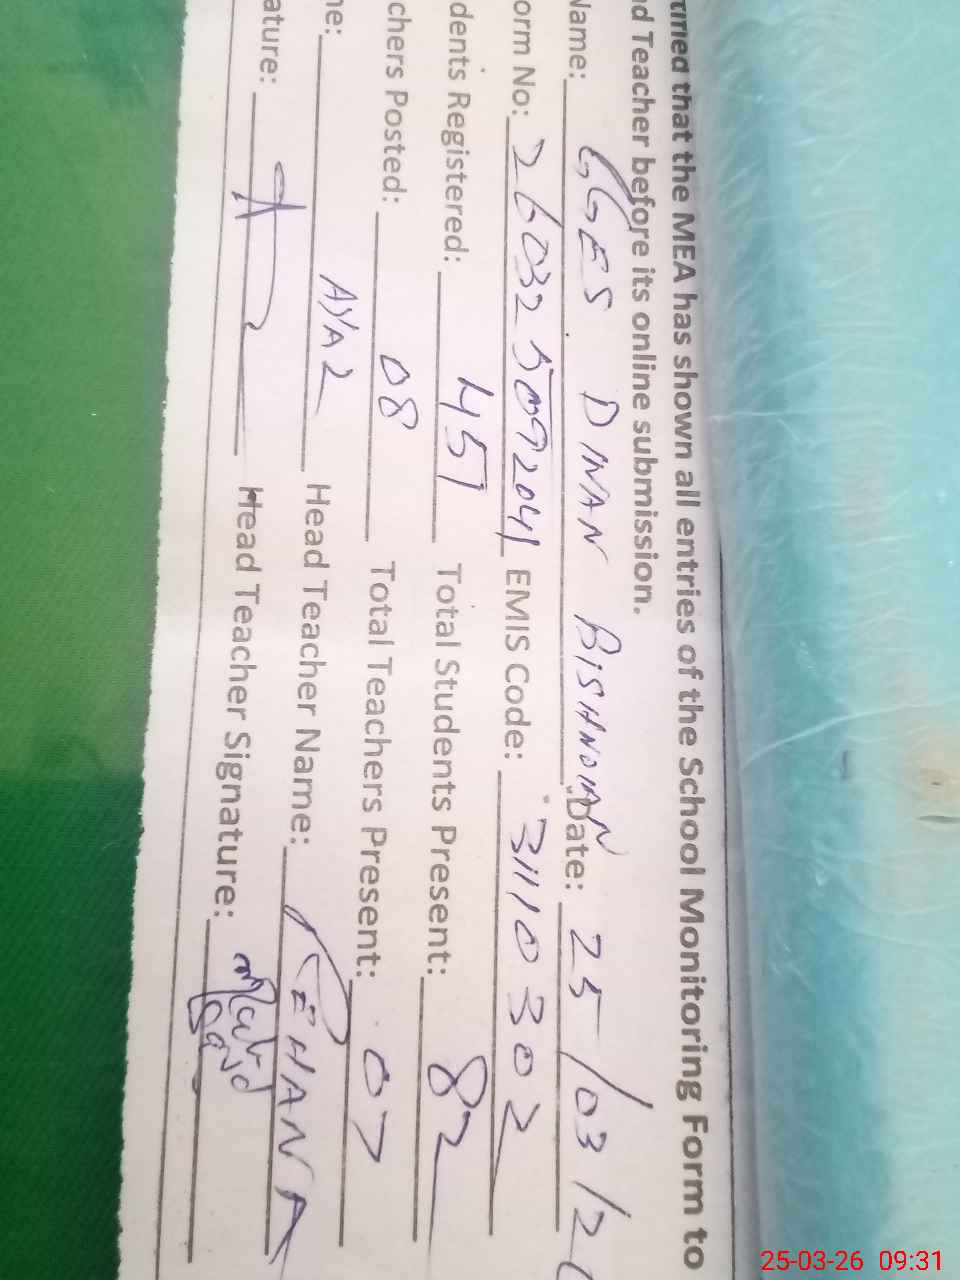 tified that the MEA has shown all entries of the School Monitoring Form to
d Teacher before its online submission.
Name: GGES DINAN BISHNOIAN Date: 25/03/2
orm No: 26032 5092041 EMIS Code: 31110302
dents Registered: 451 Total Students Present: 82
chers Posted: 08 Total Teachers Present: 07
ne: AYAZ Head Teacher Name: REHANA
ature: Head Teacher Signature:
25-03-26 09:31